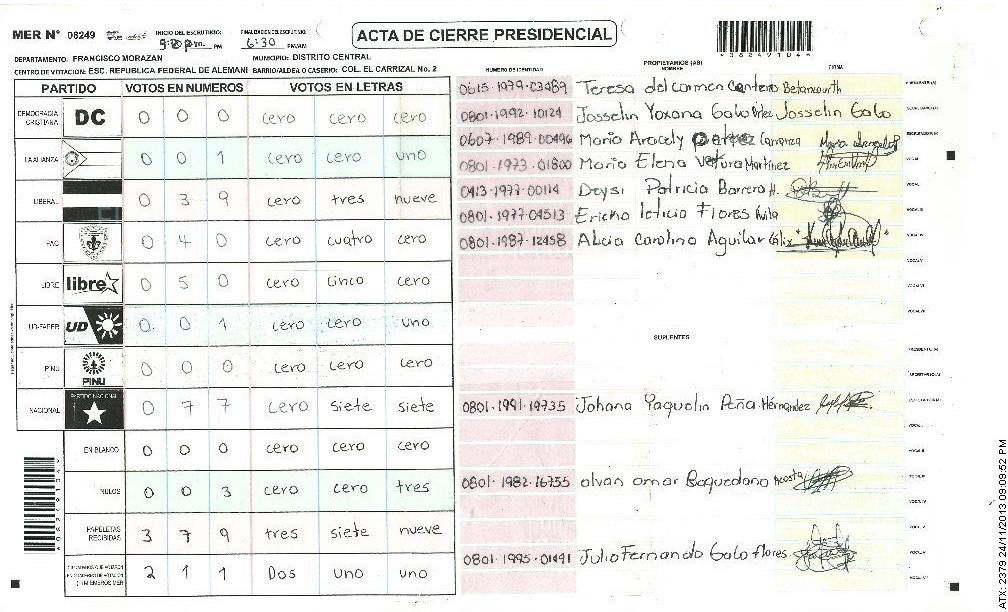 MER N° 08249 INICIO DEL ESCRUTINIO: 5:20 p.m. PM FINALIZACION DEL ESCRUTINIO: 6:30 PM/AM
ACTA DE CIERRE PRESIDENCIAL
DEPARTAMENTO: FRANCISCO MORAZAN MUNICIPIO: DISTRITO CENTRAL
CENTRO DE VOTACION: ESC. REPUBLICA FEDERAL DE ALEMANI BARRIO/ALDEA O CASERIO: COL. EL CARRIZAL No. 2
PARTIDO VOTOS EN NUMEROS VOTOS EN LETRAS
DEMOCRACIA CRISTIANA DC 0 0 0 cero cero cero
LA ALIANZA 0 0 1 cero cero uno
LIBERAL 0 3 9 cero tres nueve
PAC 0 4 0 cero cuatro cero
LIBRE libre 0 5 0 cero cinco cero
UD-FAPER UD 0 0 1 cero cero uno
PINU PINU 0 0 0 cero cero cero
NACIONAL PARTIDO NACIONAL 0 7 7 cero siete siete
EN BLANCO 0 0 0 cero cero cero
NULOS 0 0 3 cero cero tres
PAPELETAS RECIBIDAS 3 7 9 tres siete nueve
2 1 1 Dos uno uno
NUMERO DE IDENTIDAD PROPIETARIOS (AS) NOMBRE FIRMA
0615-1979-03489 Teresa del carmen Cantero Betancourth
0801-1992-10124 Josselin Yoxana Galo Josselin Galo
0607-1989-00496 Maria Aracely Carranza
0801-1973-01800 Maria Elena Ventura Martinez
0413-1977-00114 Deysi Patricia Barrera H.
0801-1977-04513 Ericka leticia Flores Avila
0801-1987-12458 Alicia Carolina Aguilar
SUPLENTES
0801-1991-19735 Johana Yaquelin Peña Hernandez
0801-1982-16755 olvan omar Baquedano Acosta
0801-1995-01491 Julio Fernando Galo flores
ATX: 2379 24/11/2013 09:09:52 PM